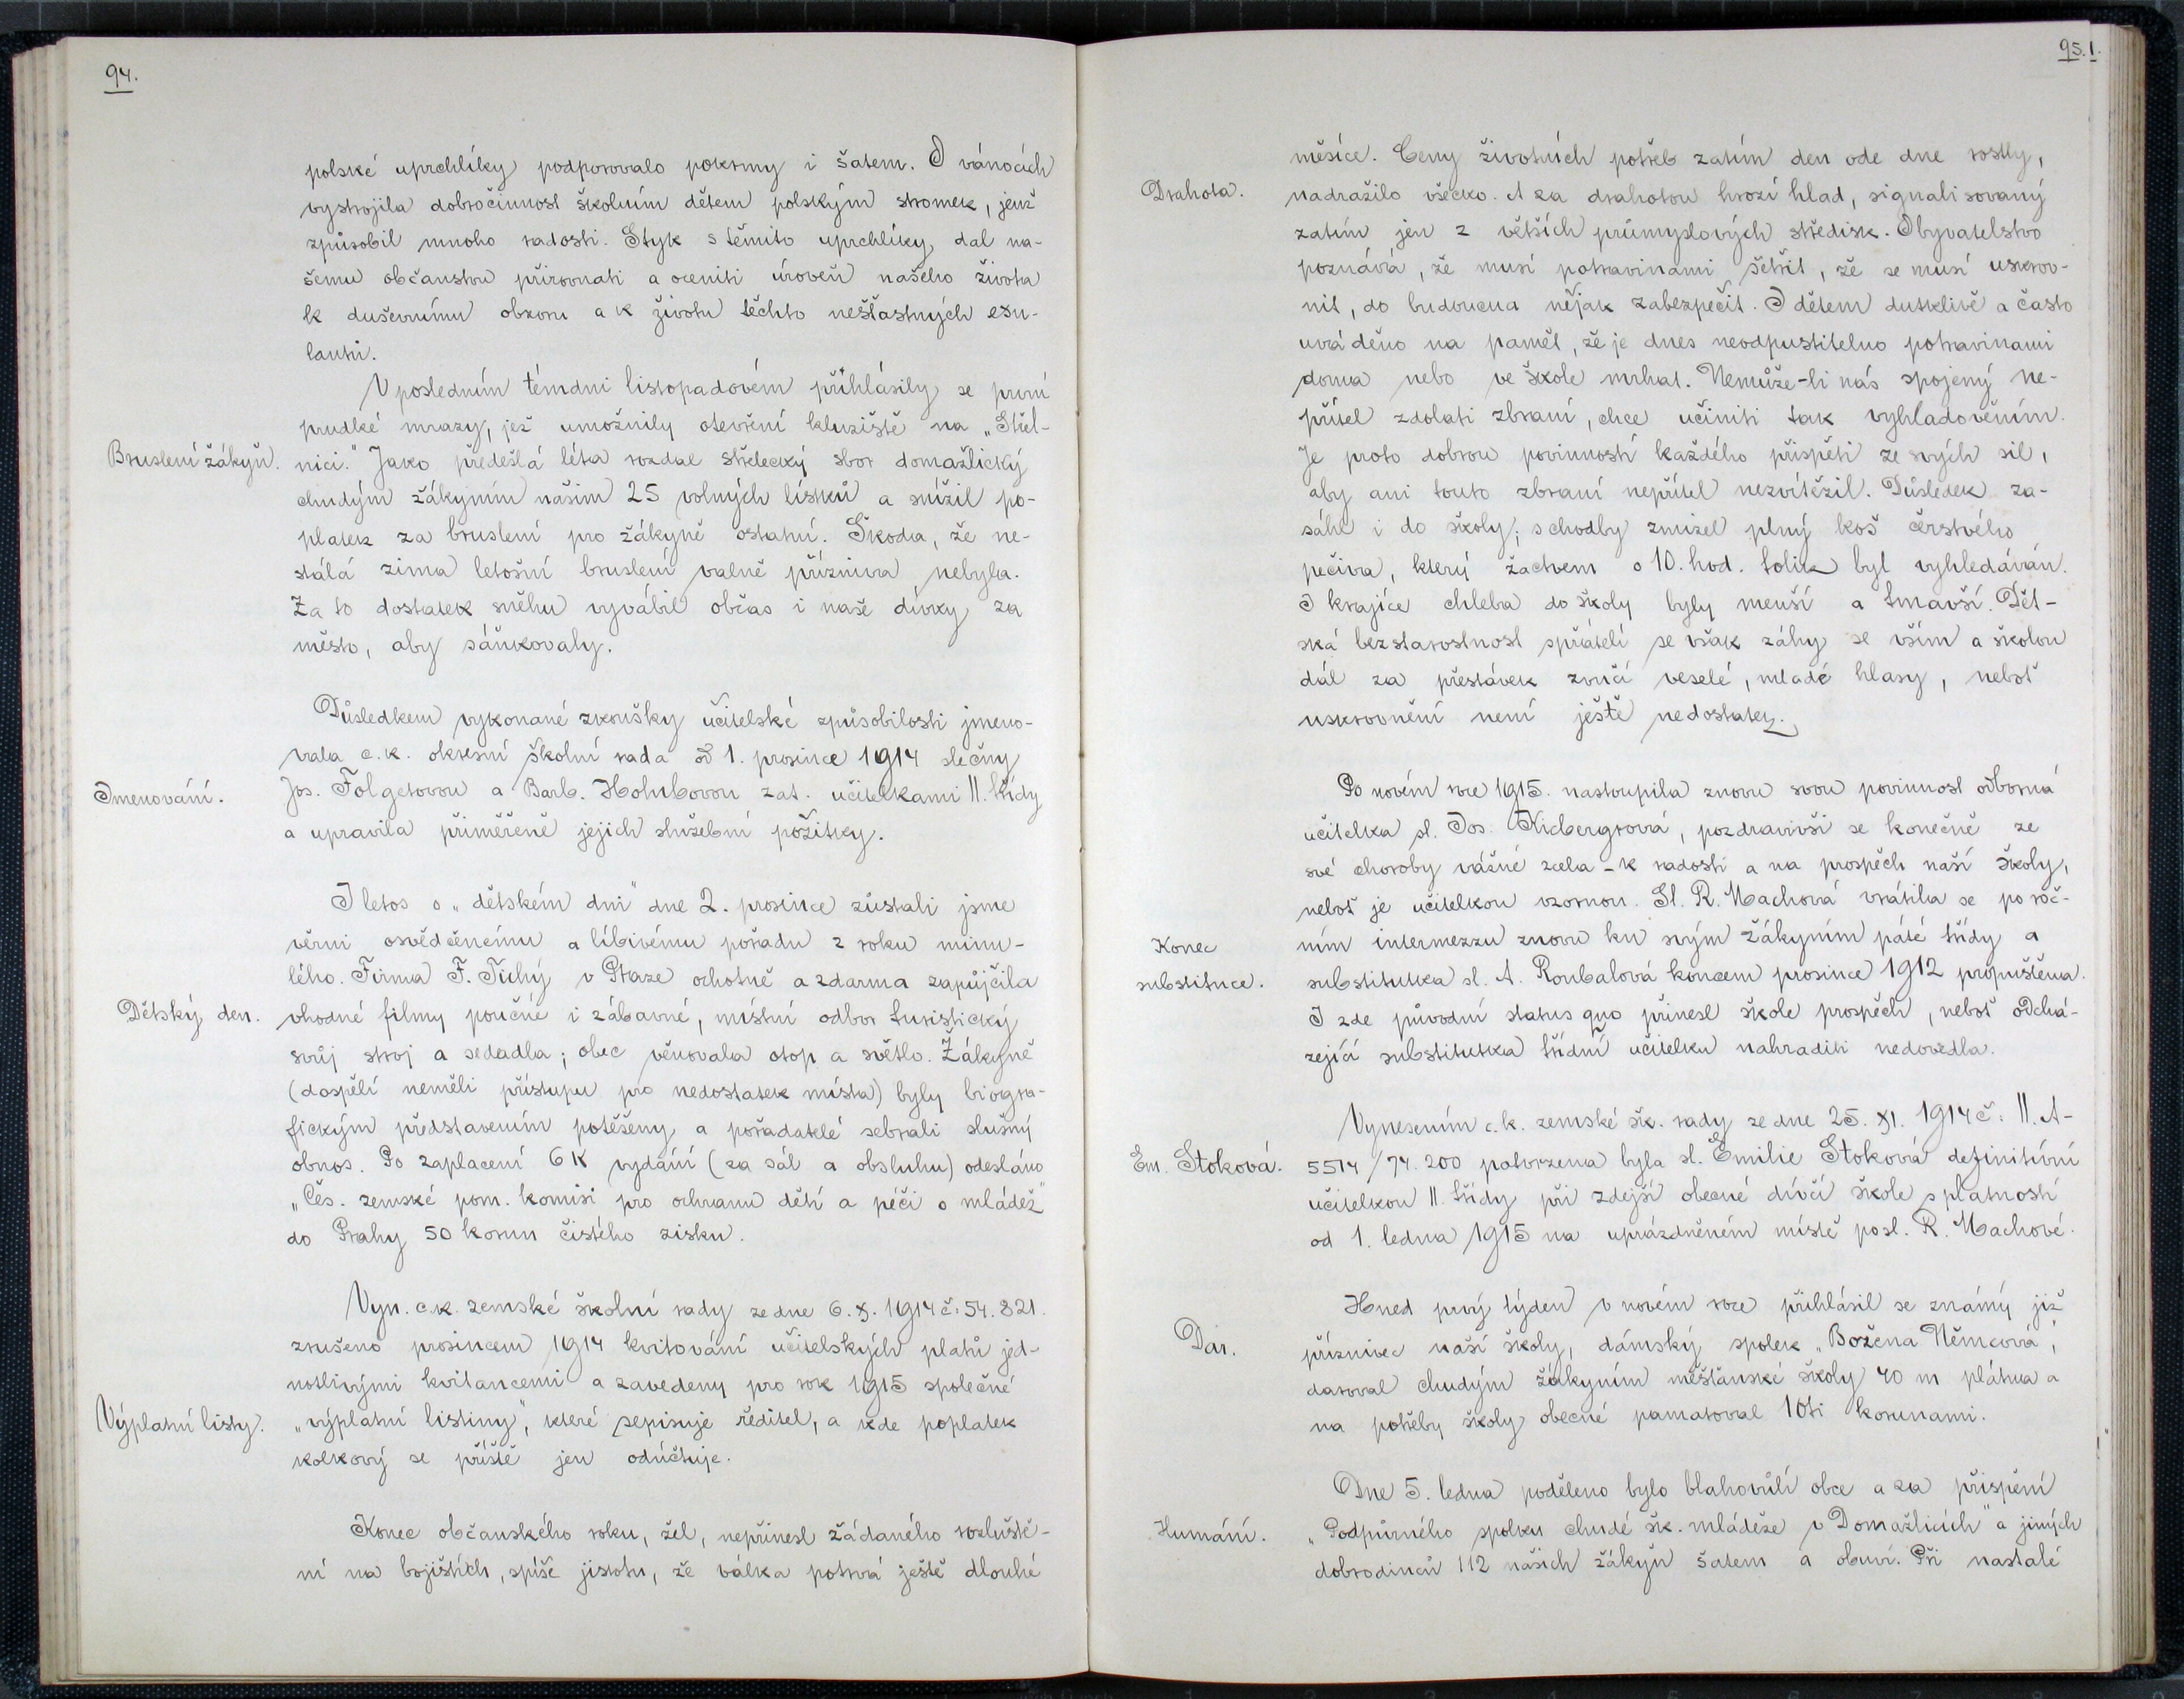 94.
polské uprchlíky podporovalo pokrmy i šatem. O vánocích
vystrojila dobročinnost školním dětem polským stromek, jenž
způsobil mnoho radosti. Styk s těmito uprchlíky dal na-
šemu občanstvu přirovnati a oceniti úroveň našeho života
k duševnímu obzoru a k životu těchto nešťastných exu-
lantů.
V posledním témdni listopadovém přihlásily se první
prudké mrazy, jež umožnily otevření kluziště na „Střel-
Bruslení žákyň.
nici." Jako předešlá léta rozdal střelecký sbor domažlický
chudým žákyním našim 25 volných lístků a snížil po-
platek za bruslení pro žákyně ostatní. Škoda, že ne-
stálá zima letošní bruslení valně příznivá nebyla.
Za to dostatek sněhu vyvábil občas i naše dívky za
město, aby sáňkovaly.
Důsledkem vykonané zkoušky učitelské způsobilosti jmeno-
vala c.k. okresní školní rada od 1. prosince 1914 slečny
Jmenování.
Jos. Folgetovou a Barb. Holubovou zat. učitelkami II. třídy
a upravila přiměřeně jejich služební požitky.
I letos o „dětském dni" dne 2. prosince zůstali jsme
věrni osvědčenému a líbivému pořadu z roku minu-
lého. Firma F. Tichý v Praze ochotně a zdarma zapůjčila
Dětský den.
vhodné filmy poučné i zábavné, místní odbor turistický
svůj stroj a sedadla; obec věnovala otop a světlo. Žákyně
(dospělí neměli přístupu pro nedostatek místa) byly biogra-
fickým představením potěšeny a pořadatelé sebrali slušný
obnos. Po zaplacení 6 K vydání (za sál a obsluhu) odesláno
„Čes. zemské pom. komisi pro ochranu dětí a péči o mládež"
do Prahy 50 korun čistého zisku.
Vyn. c.k. zemské školní rady ze dne 6. X. 1914 č: 54.821.
zrušeno prosincem 1914 kvitování učitelských platů jed-
notlivými kvitancemi a zavedeny pro rok 1915 společné
Výplatní listy.
„výplatní listiny", které sepisuje ředitel, a kde poplatek
kolkový se příště jen odúčtuje.
Konec občanského roku, žel, nepřinesl žádaného rozluště-
ní na bojištích, spíše jistotu, že válka potrvá ještě dlouhé
95. 1.
měsíce. Ceny životních potřeb zatím den ode dne rostly,
Drahota.
nadražilo všecko. A za drahotou hrozí hlad, signalisovaný
zatím jen z větších průmyslových středisk. Obyvatelstvo
poznává, že musí potravinami šetřit, že se musí uskrov-
nit, do budoucna nějak zabezpečit. I dětem dutklivě a často
uváděno na paměť, že je dnes neodpustitelno potravinami
doma nebo ve škole mrhat. Nemůže-li nás spojený ne-
přítel zdolati zbraní, chce učiniti tak vyhladověním.
Je proto dobrou povinností každého přispěti ze svých sil,
aby ani touto zbraní nepřítel nezvítězil. Důsledek za-
sáhl i do školy; s chodby zmizel plný koš čerstvého
pečiva, který žactvem o 10. hod. tolik byl vyhledáván.
I krajíce chleba do školy byly menší a tmavší. Dět-
ská bezstarostnost spřátelí se však záhy se vším a školou
dál za přestávek zvučí veselé, mladé hlasy, neboť
uskrovnění není ještě nedostatek.
Po novém roce 1915. nastoupila znovu svou povinnost odborná
učitelka sl. Jos. Kicbergrová, pozdravivši se konečně ze
své choroby vážné zcela - k radosti a na prospěch naší školy,
neboť je učitelkou vzornou. Sl. R. Machová vrátila se po roč-
Konec
ním intermezzu znovu ku svým žákyním páté třídy a
substituce.
substitutka sl. A. Roubalová koncem prosince 1912 propuštěna.
I zde původní status quo přinesl škole prospěch, neboť odchá-
zející substitutka třídní učitelku nahraditi nedovedla.
Vynesením c.k. zemské šk. rady ze dne 25. XI. 1914 č: II. A-
Em. Štoková.
5514/74.200 potvrzena byla sl. Emilie Štoková definitivní
učitelkou II. třídy při zdejší obecné dívčí škole s platností
od 1. ledna 1915 na uprázdněném místě po sl. R. Machové.
Hned prvý týden v novém roce přihlásil se známý již
Dar.
příznivec naší školy, dámský spolek „Božena Němcová",
daroval chudým žákyním měšťanské školy 40 m plátna a
na potřeby školy obecné pamatoval 10ti korunami.
Dne 5. ledna poděleno bylo blahovůlí obce a za přispění
Humání.
„Podpůrného spolku chudé šk. mládeže v Domažlicích" a jiných
dobrodinců 112 našich žákyň šatem a obuví. Při nastalé